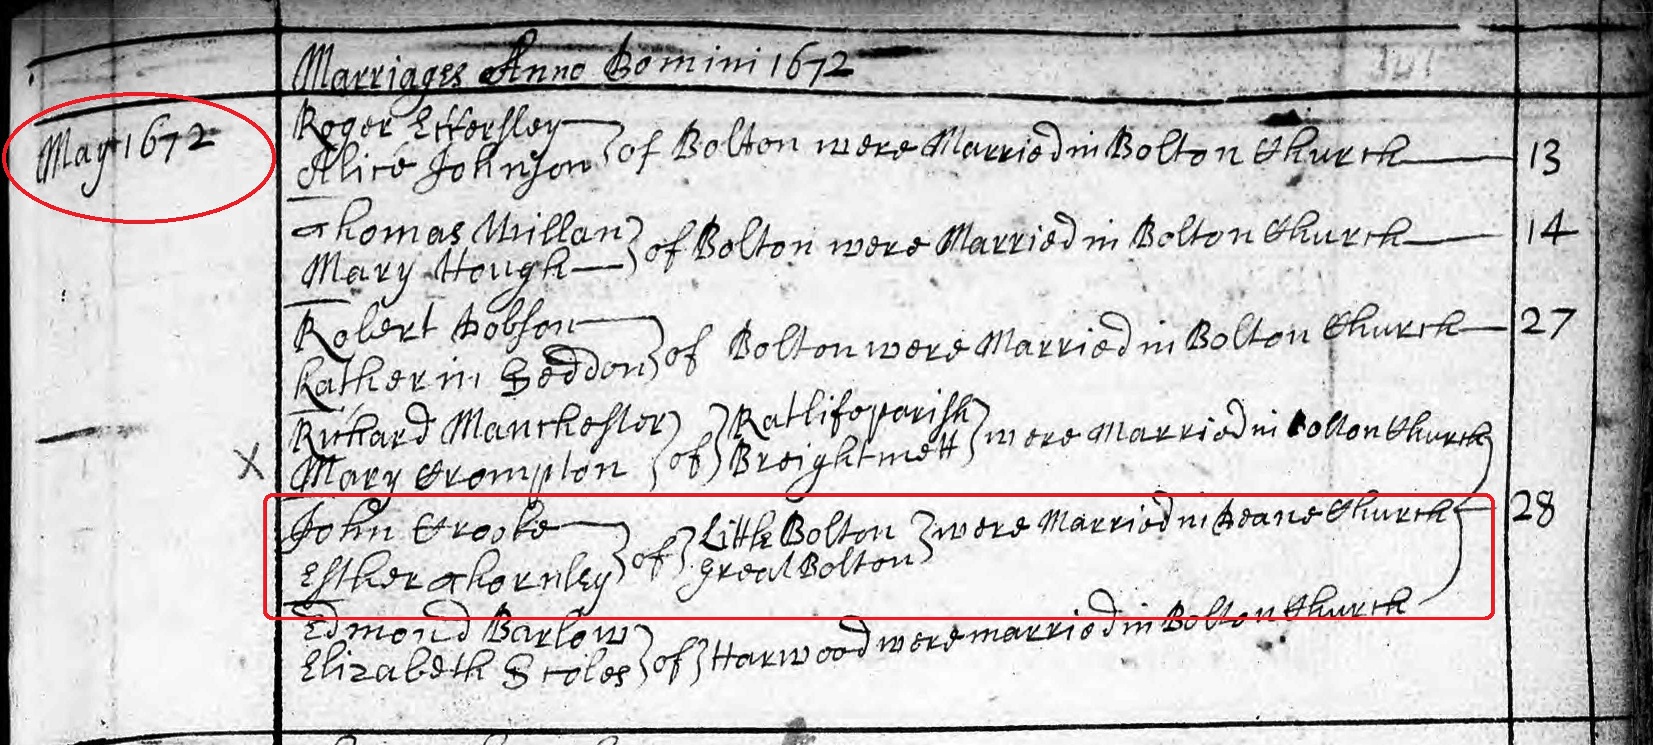 Marriages Anno Domini 1672
May 1672
Roger Eckersley
Alice Johnson } of Bolton were Married in Bolton Church 13
Thomas
Mary Hough } of Bolton were Married in Bolton Church 14
Robert Dobson
Katherin Seddon } of Bolton were Married in Bolton Church 27
Richard Manchester } of } Ratlife parish
X Mary Crompton Breightmett } were Married in Bolton Church
John Crooke } of } Little Bolton } were Married in Deane Church 28
Esther Thornley Great Bolton
Edmond Barlow
Elizabeth Scoles } of } Harwood were married in Bolton Church